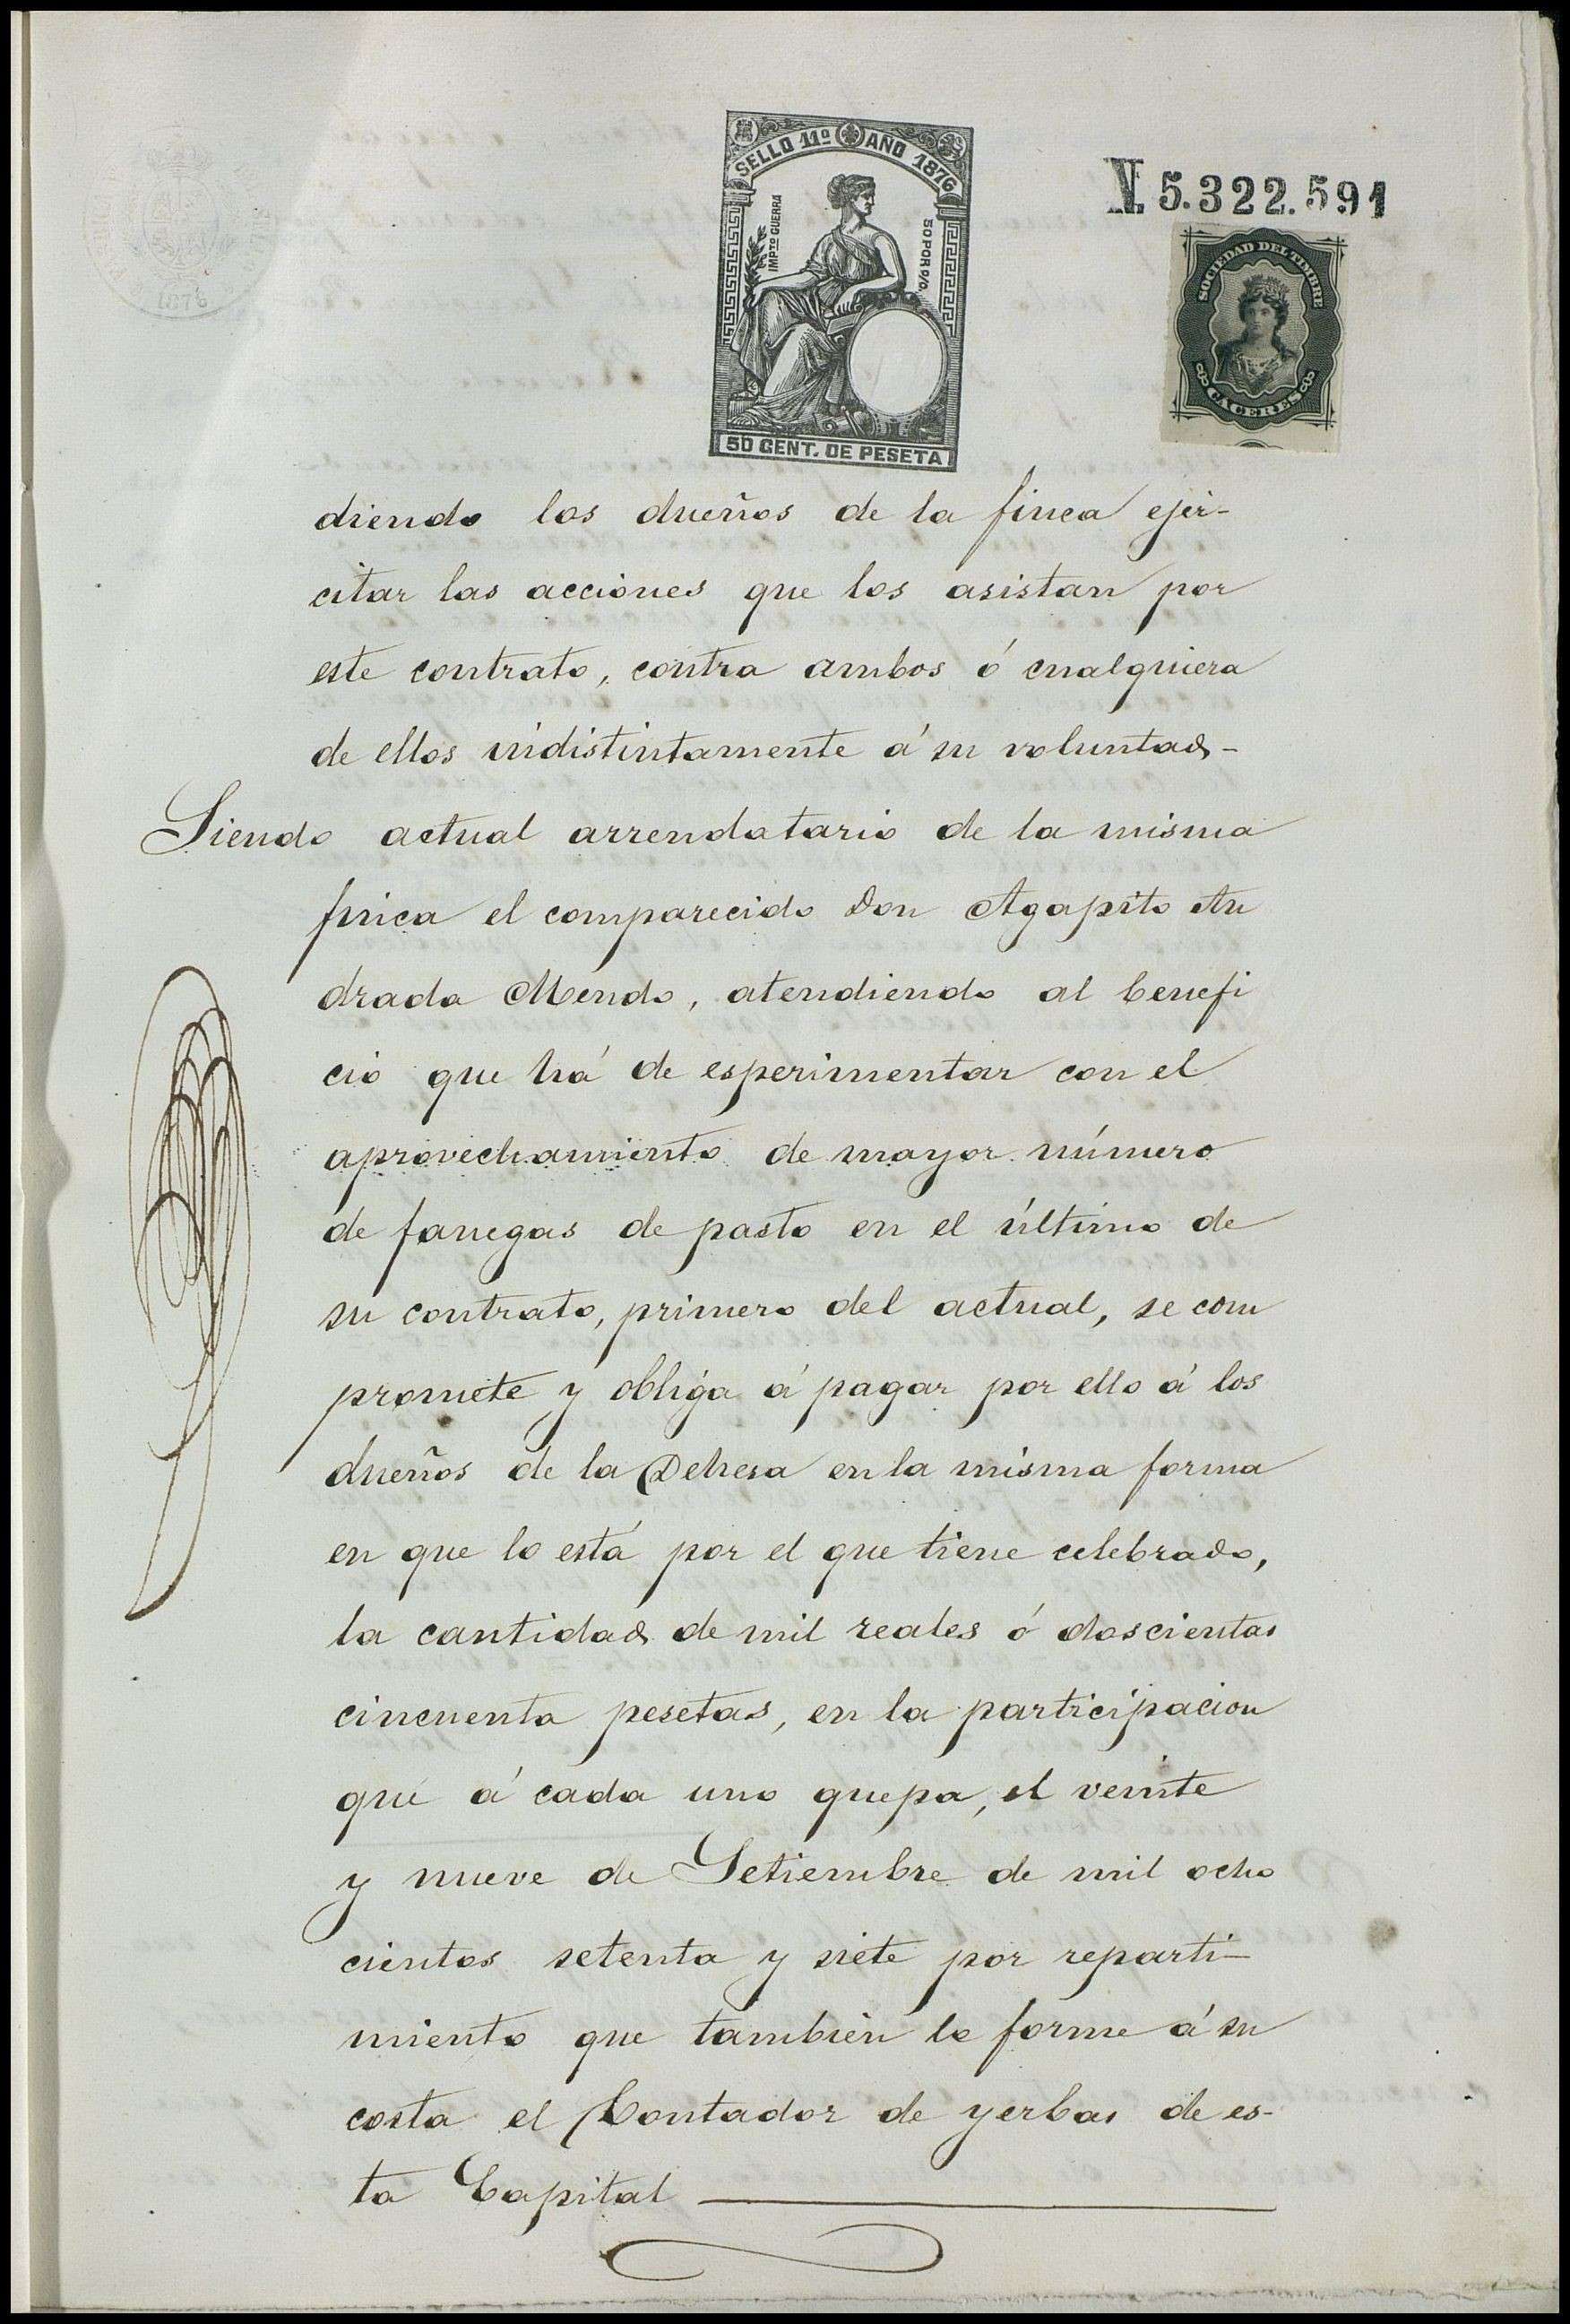 SELLO 11º AÑO 1876
IMPTO GUERRA
50 POR 0/0.
50 CENT. DE PESETA
N. 5.322.591
SOCIEDAD DEL TIMBRE
CACERES
1876
diendo los dueños de la finca ejer-
citar las acciones que los asistan por
este contrato, contra ambos ó cualquiera
de ellos indistintamente á su voluntad-
Siendo actual arrendatario de la misma
finca el comparecido Don Agapito An
drada Mendo, atendiendo al benefi
cio que há de esperimentar con el
aprovechamiento de mayor número
de fanegas de pasto en el último de
su contrato, primero del actual, se com
promete y obliga á pagar por ello á los
dueños de la Dehesa en la misma forma
en que lo está por el que tiene celebrado,
la cantidad de mil reales ó doscientas
cincuenta pesetas, en la participacion
que á cada uno quepa, el veinte
y nueve de Setiembre de mil ocho
cientos setenta y siete por reparti-
miento que también le forme á su
costa el Contador de yerbas de es-
ta Capital